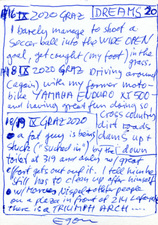 16 IX 2020 GRAZ DREAMS 20
I barely manage to shoot a
soccer ball into the WIDE OPEN
goal, get caught (my foot) in the
grass.
18 IX 2020 GRAZ Driving around
(again) with my former moto-
bike YAMAHA ENDURO XT 500
and having great fun doing so,
Cross country
dirt roads
18/19 IX GRAZ 2020
a fat guy is being
stuck ("sucked in") by the
toilet at 319 and only w/ great
effort gets out of it. I tell him he
still has to clean up after himself
w/ Hannes Nispel + other people
on a plaza in front of
there is a TRIUMPH ARCH
Egon